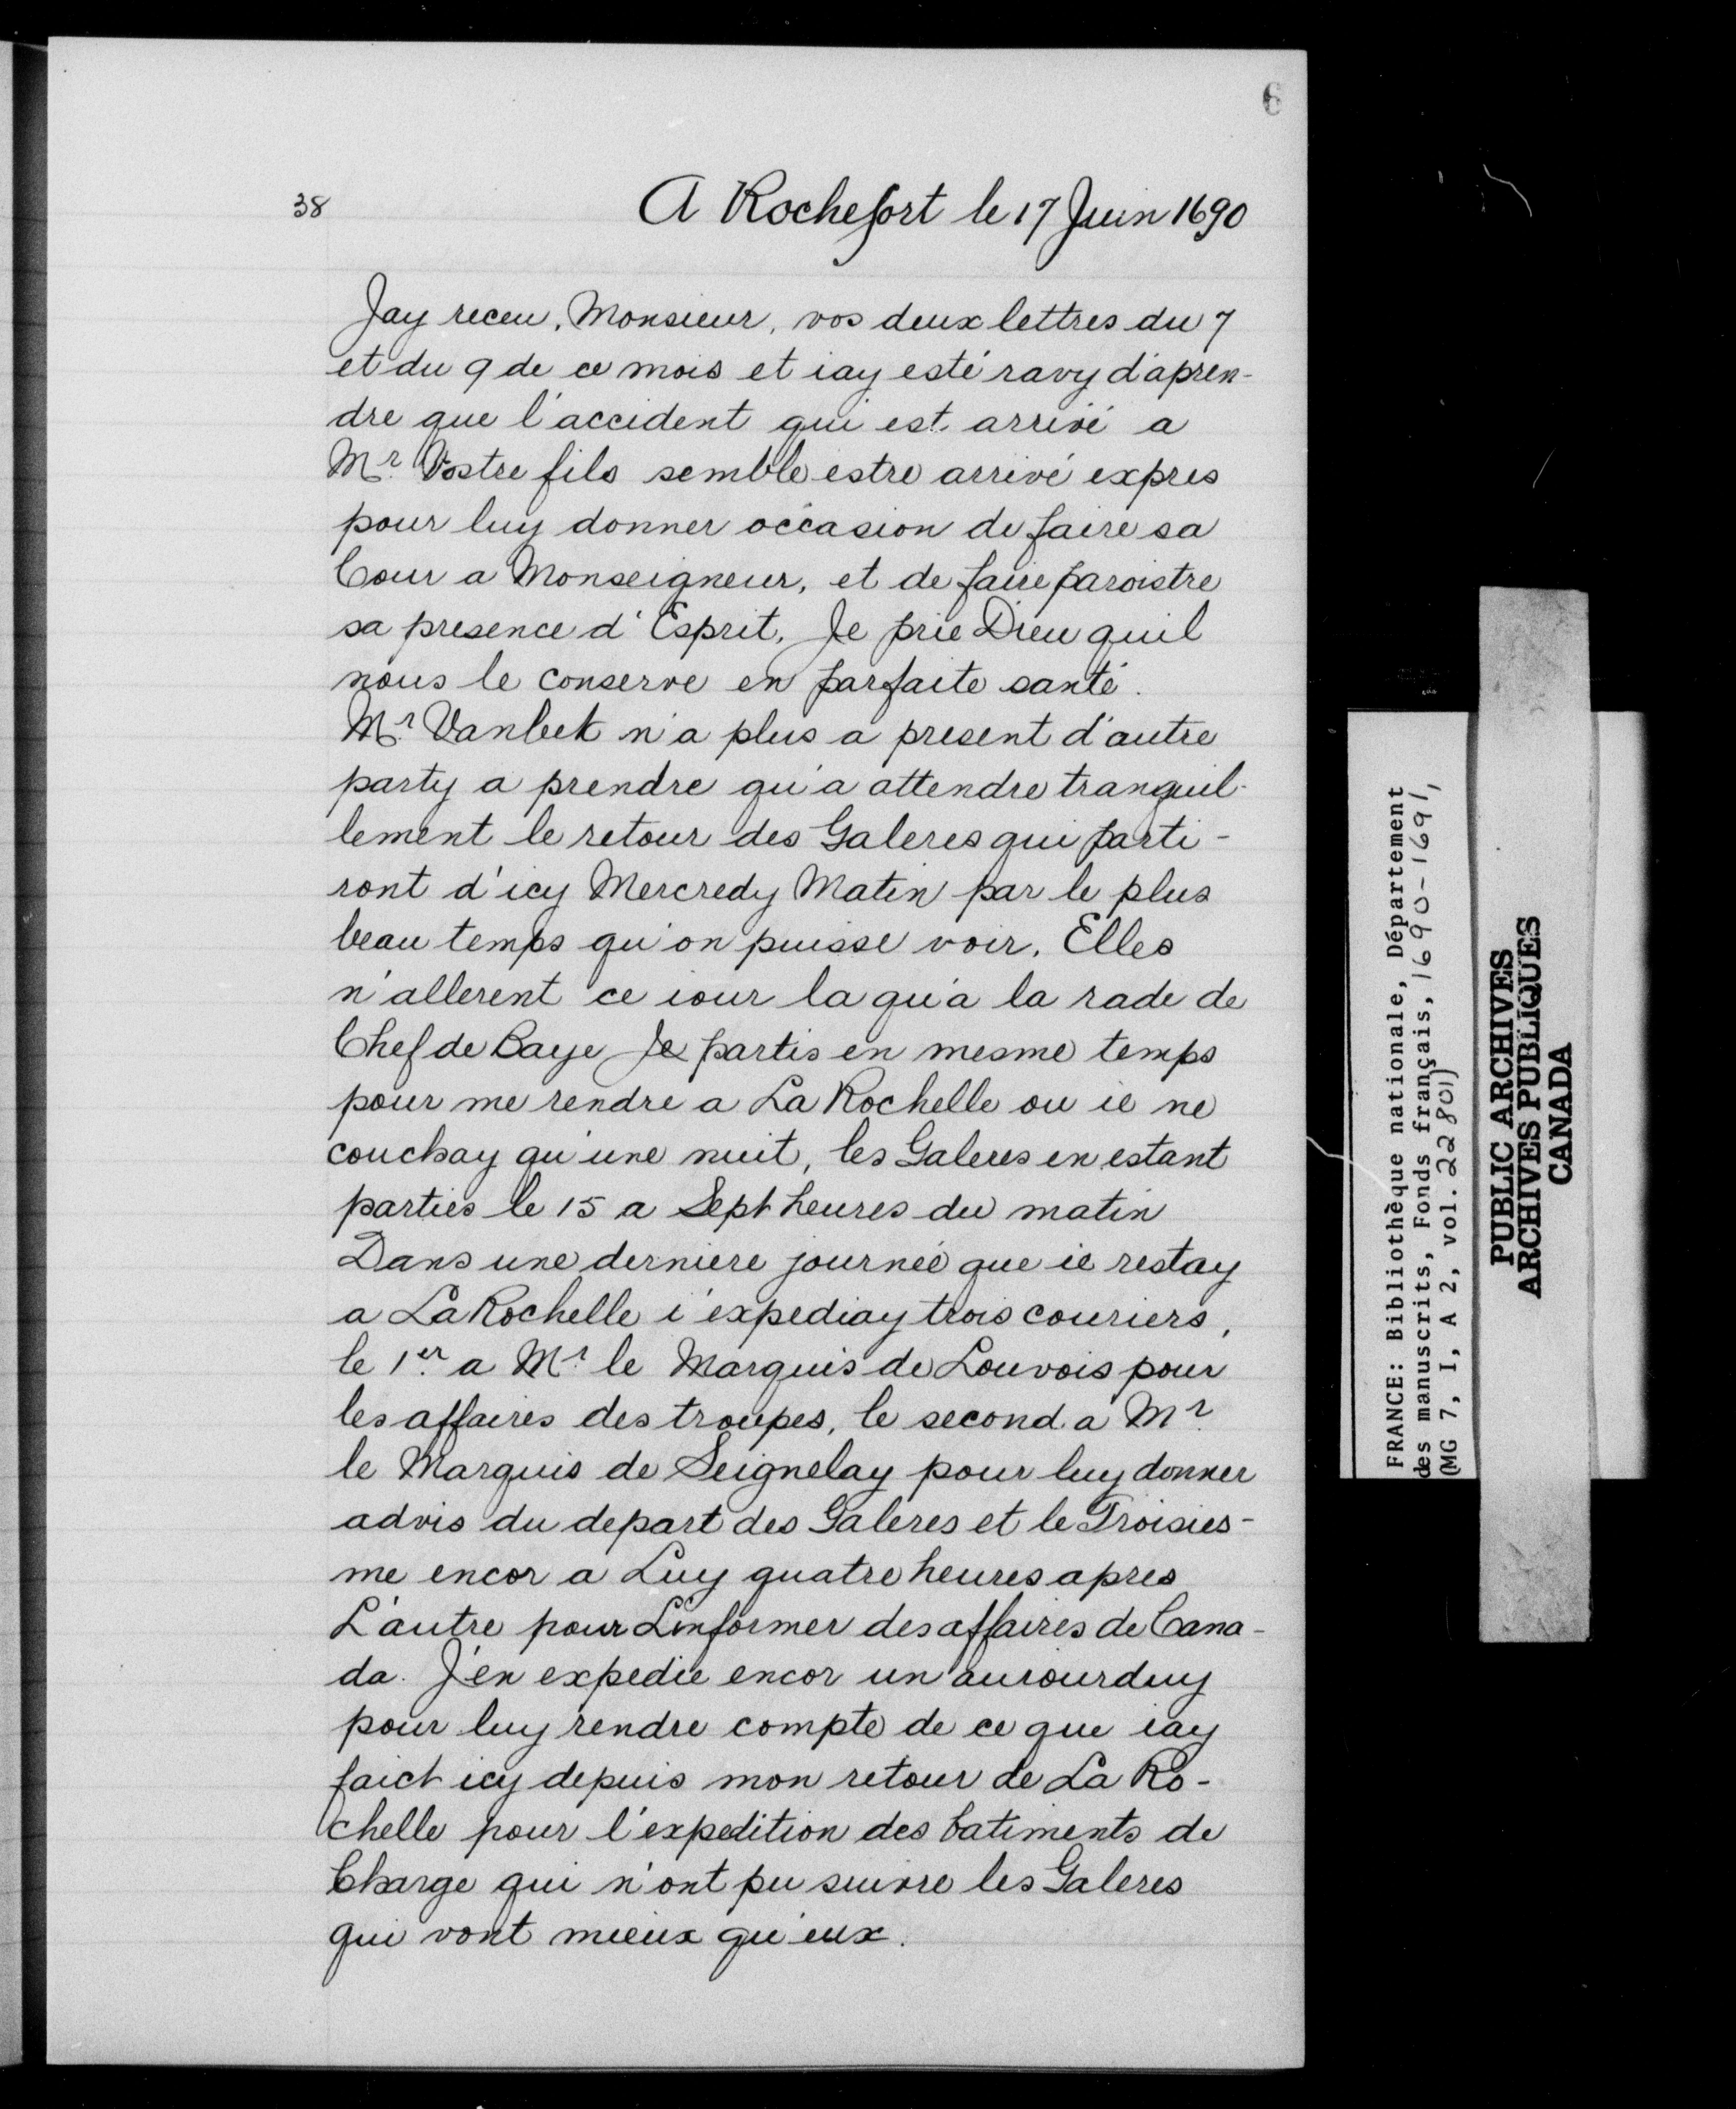 6
38
A Rochefort le 17 Juin 1690
Jay receu, Monsieur, vos deux lettres du 7
et du 9 de ce mois et iay esté ravy d'apren-
dre que l'accident qui est arrivé a
Mr. Vostre fils semble estre arrivé expres
pour luy donner occasion de faire sa
Cour a Monseigneur, et de faire paroistre
sa presence d'Esprit, Je prie Dieu quil
nous le conserve en parfaite santé.
Mr. Vanbek n'a plus a present d'autre
party a prendre qu'a attendre tranquil-
lement le retour des Galeres qui parti-
ront d'icy Mercredy Matin par le plus
beau temps qu'on puisse voir. Elles
n'allerent ce iour la qu'a la rade de
Chef de Baye Je partis en mesme temps
pour me rendre a La Rochelle ou ie ne
couchay qu'une nuit, les Galeres en estant
parties le 15 a Sept heures du matin
Dans une derniere journée que ie restay
a La Rochelle i'expediay trois couriers,
le 1er. a Mr. le Marquis de Louvois pour
les affaires des troupes, le second a Mr.
le Marquis de Seignelay pour luy donner
advis du depart des Galeres et le Troisies-
me encor a Luy quatre heures apres
L'autre pour L'informer des affaires de Cana-
da. J'en expedie encor un auiourduy
pour luy rendre compte de ce que iay
faict icy depuis mon retour de La Ro-
chelle pour l'expedition des batiments de
Charge qui n'ont pu suivre les Galeres
qui vont mieux qu'eux.
FRANCE: Bibliothèque nationale, Département
des manuscrits, Fonds français, 1690-1691,
(MG 7, I, A 2, vol. 22801)
PUBLIC ARCHIVES
ARCHIVES PUBLIQUES
CANADA